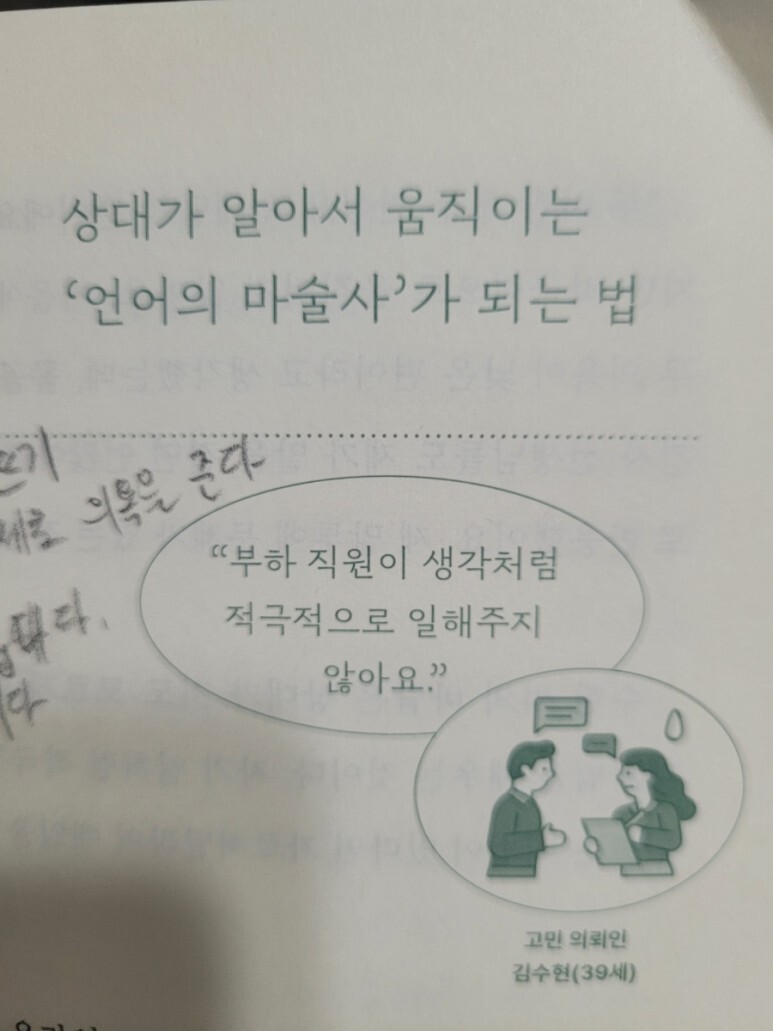 상대가 알아서 움직이는
‘언어의 마술사’가 되는 법
쓰기
의욕을 준다
“부하 직원이 생각처럼
적극적으로 일해주지
않아요.”
고민 의뢰인
김수현(39세)